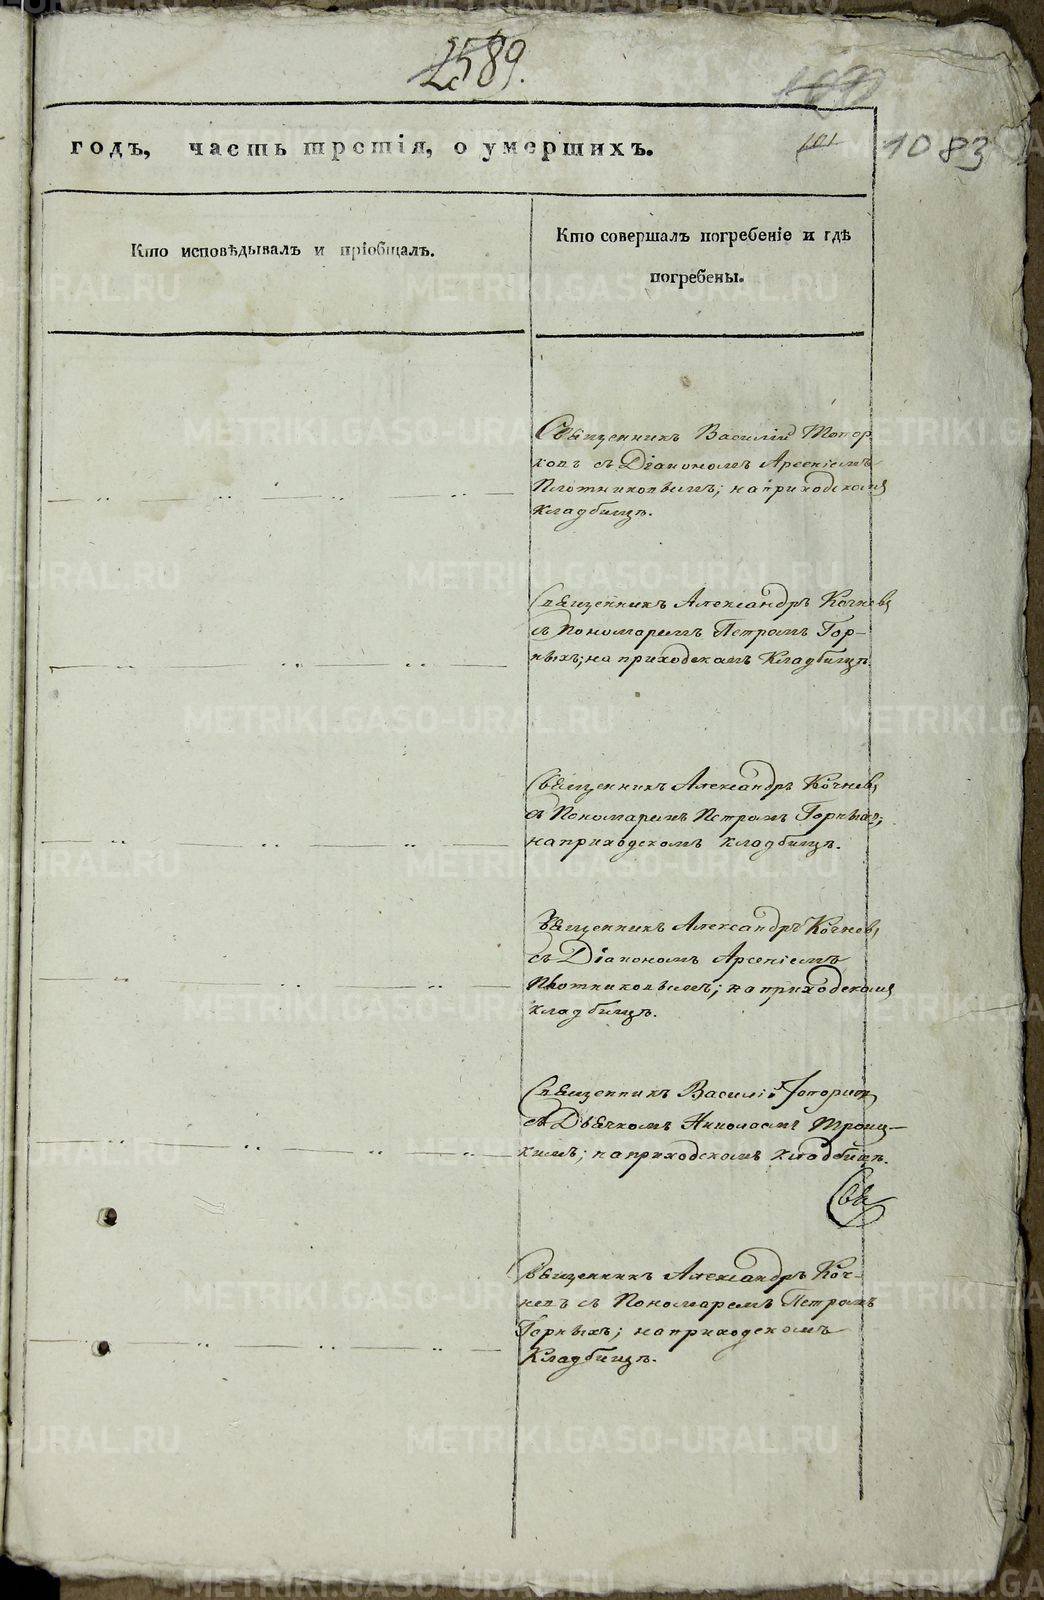 2589.
годъ, часть третія, о умершихъ.
101
1083
Кто исповѣдывалъ и пріобщалъ.
Кто совершалъ погребеніе и гдѣ
погребены.
Священникъ Василій Топор
ковъ съ Діакономъ Арсеніемъ
Плотниковымъ; на приходскомъ
кладбищѣ.
Священникъ Александръ Кочневъ
съ Пономаремъ Петромъ Гор-
ныхъ; на приходскомъ Кладбищѣ.
Священникъ Александръ Кочневъ
съ Пономаремъ Петромъ Горныхъ;
на приходскомъ кладбищѣ.
Священникъ Александръ Кочневъ
съ Діакономъ Арсеніемъ
Плотниковымъ; на приходскомъ
кладбищѣ.
Священникъ Василій Топорков
съ Дьячкомъ Николаемъ Троиц-
кимъ; на приходскомъ кладбищѣ.
Свя
Священникъ Александръ Коч-
невъ съ Пономаремъ Петромъ
Горныхъ; на приходскомъ
Кладбищѣ.
METRIKI.GASO-URAL.RU